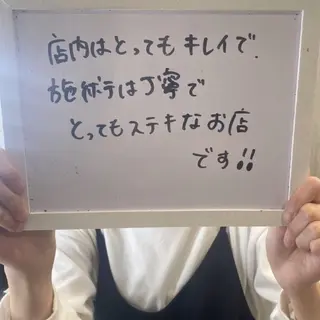 店内はとってもキレイで、
施術は丁寧で
とってもステキなお店
です!!